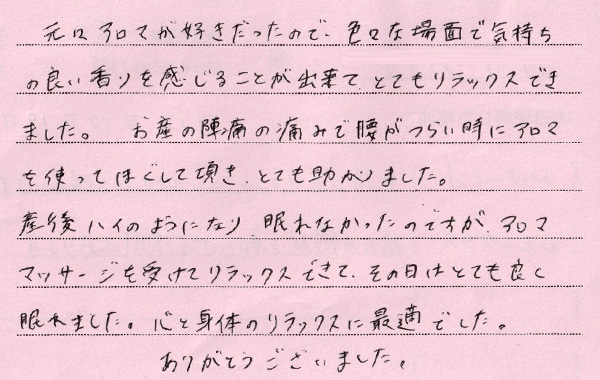 元々アロマが好きだったので、色々な場面で気持ち
の良い香りを感じることが出来て とてもリラックスでき
ました。 お産の陣痛の痛みで腰がつらい時にアロマ
を使ってほぐして頂き、とても助かりました。
産後ハイのようになり 眠れなかったのですが、アロマ
マッサージを受けてリラックスできて、その日はとても良く
眠れました。心と身体のリラックスに最適でした。
ありがとうございました。